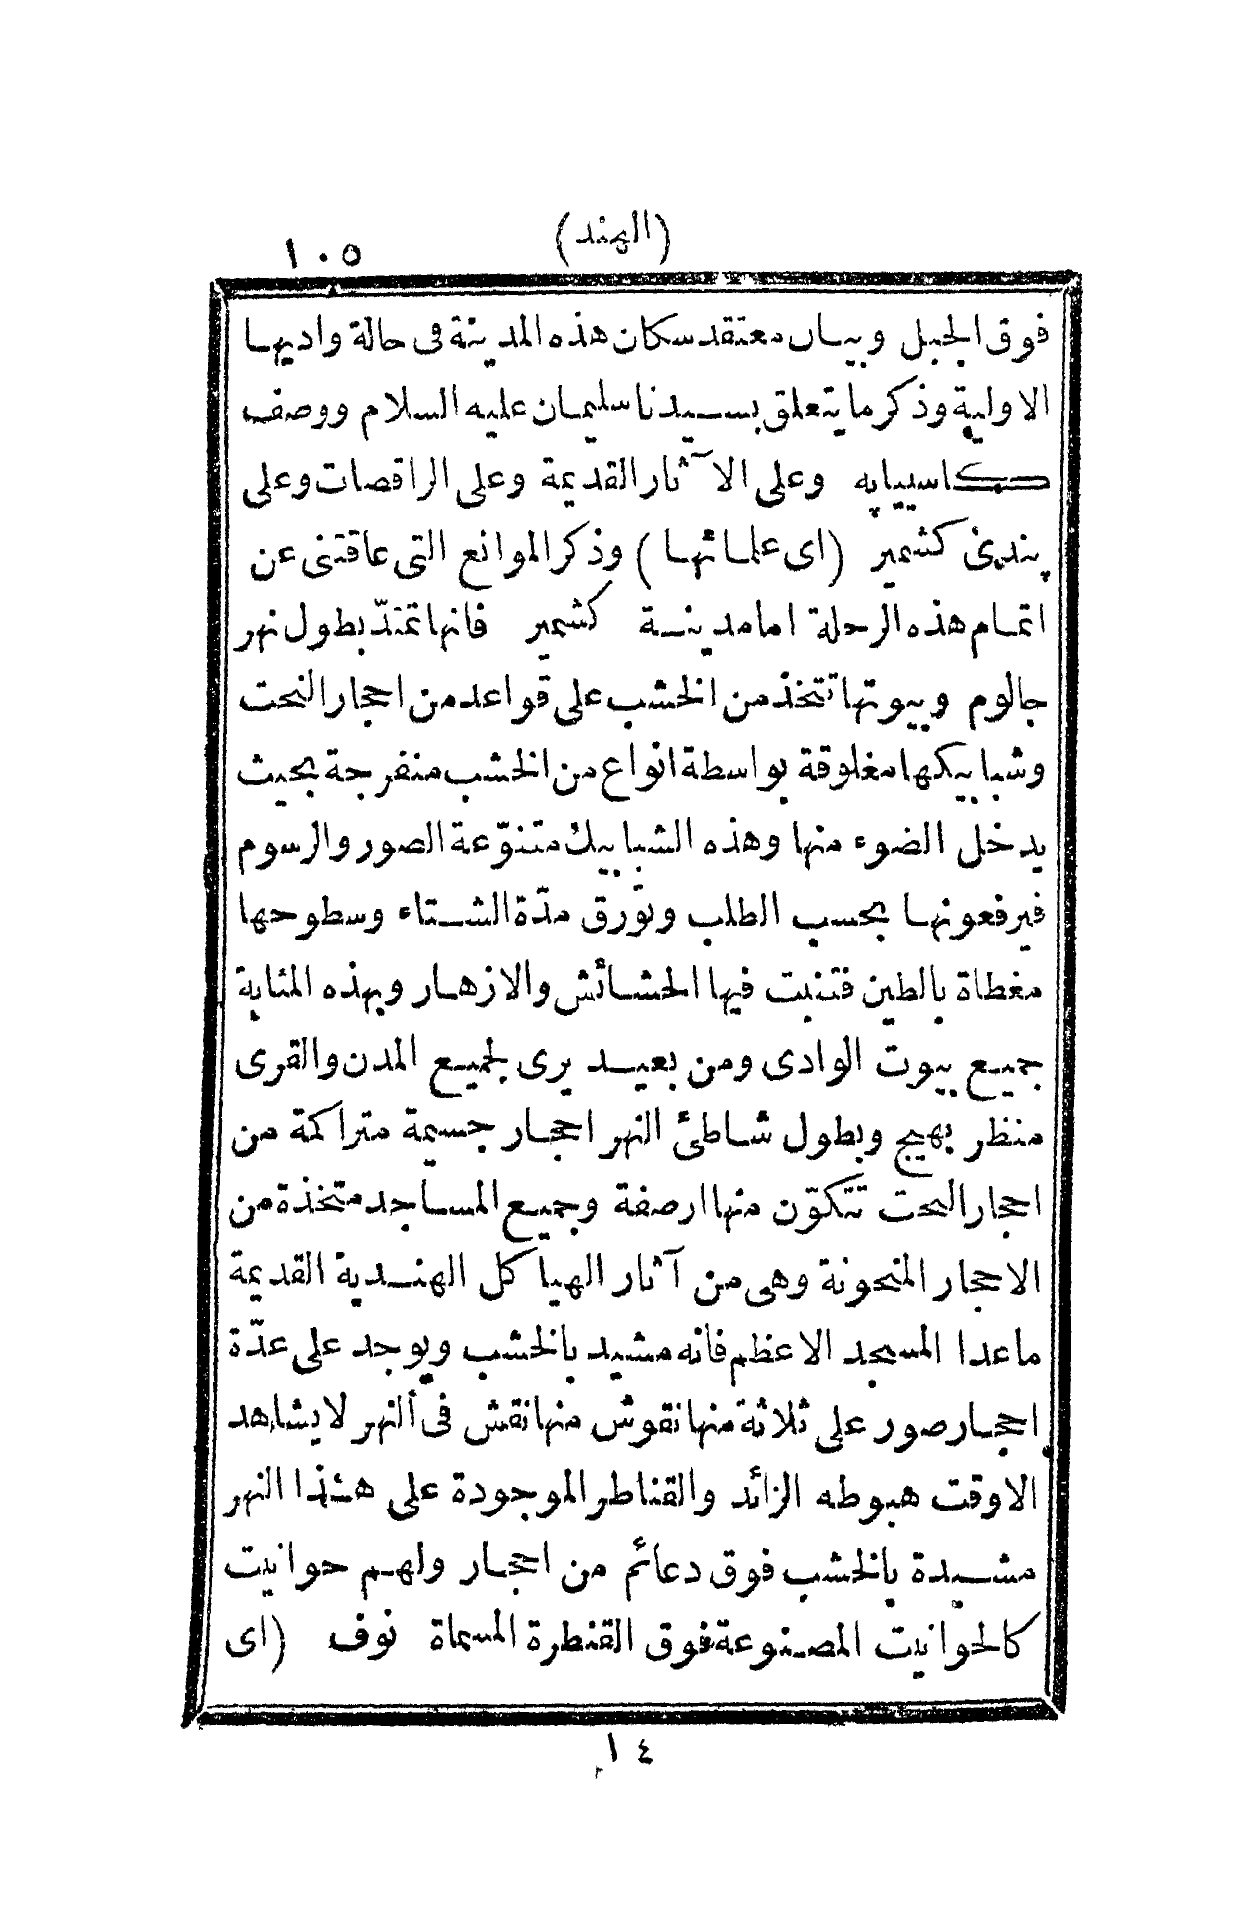 (الهند)
١٠٥
فوق الجبل وبيان معتقد سكان هذه المدينة فى حالة واديها
الاولية وذكر ما يتعلق بسيدنا سليمان عليه السلام ووصف
كاسيپايه وعلى الآثار القديمة وعلى الراقصات وعلى
پندىئ كشمير (اى علمائها) وذكر الموانع التى عاقتنى عن
اتمام هذه الرحلة امامدينة كشمير فانها تمتدّ بطول نهر
جالوم وبيوتها تتخذ من الخشب على قواعد من احجار النحت
وشبابيكها مغلوقة بواسطة انواع من الخشب منفرجة بحيث
يدخل الضوء منها وهذه الشبابيك متنوّعة الصور والرسوم
فيرفعونها بحسب الطلب وتورق مدّة الشتاء وسطوحها
مغطاة بالطين فتنبت فيها الحشائش والازهار وبهذه المثابة
جميع بيوت الوادى ومن بعيد يرى لجميع المدن والقرى
منظر بهيج وبطول شاطئ النهر احجار جسيمة متراكمة من
احجار النحت تتكوّن منها ارصفة وجميع المساجد متخذة من
الاحجار المنحوتة وهى من آثار الهياكل الهندية القديمة
ماعدا المسجد الاعظم فانه مشيد بالخشب ويوجد على عدّة
احجار صور على ثلاثة منها نقوش منها نقش فى النهر لا يشاهد
الاوقت هبوطه الزائد والقناطر الموجودة على هذا النهر
مشيدة بالخشب فوق دعائم من احجار ولهم حوانيت
كالحوانيت المصنوعة فوق القنطرة المسماة نوف (اى
١٤